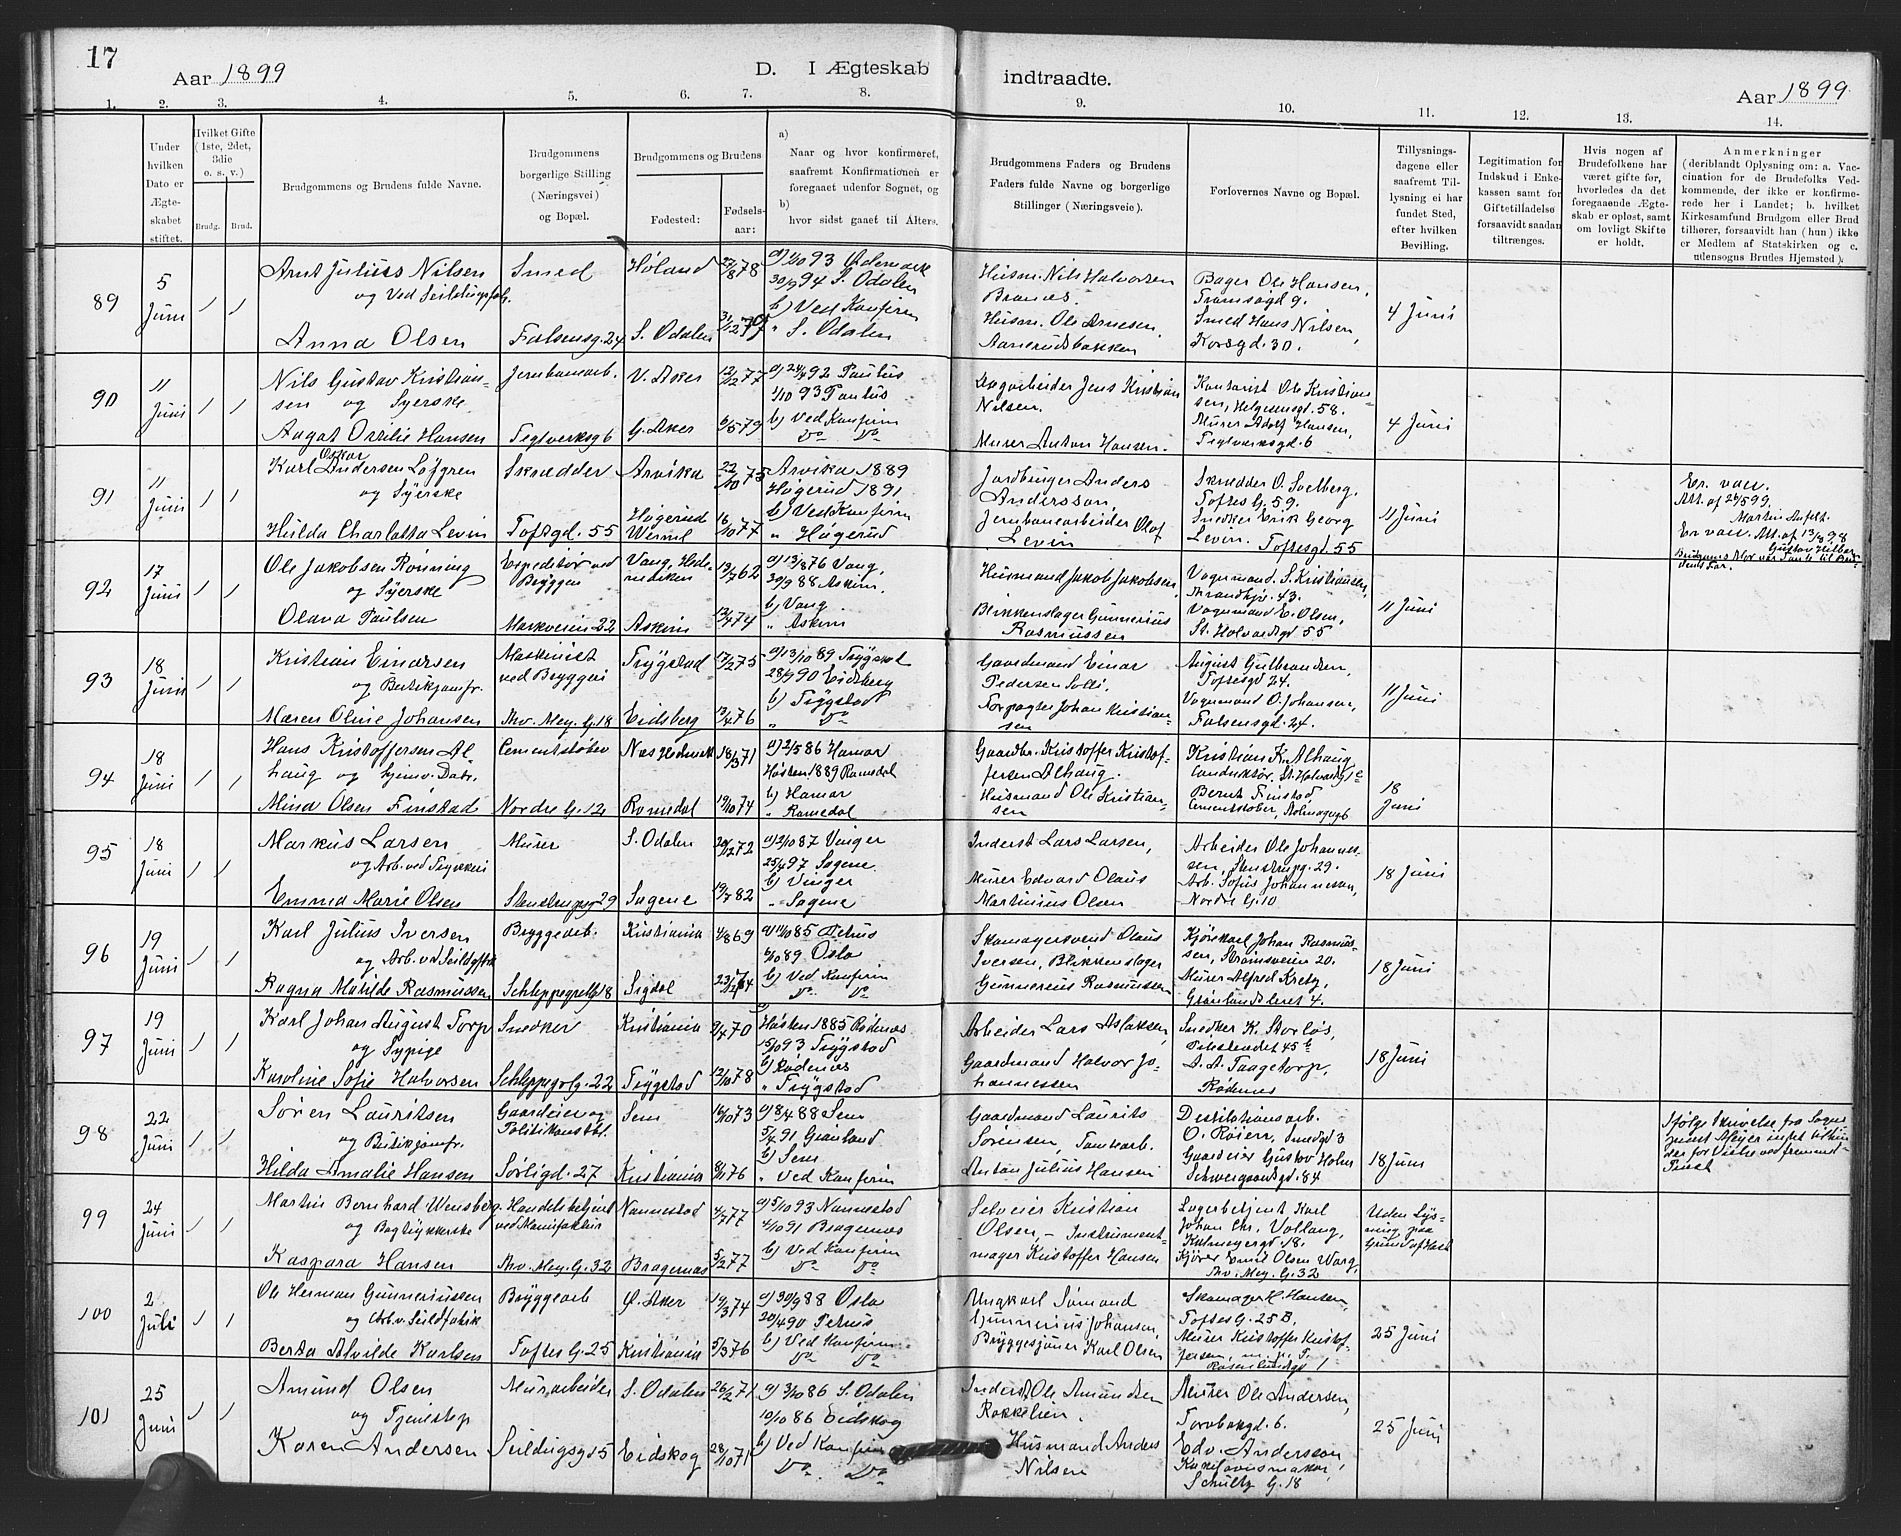 17
Aar 1899
D. I Ægteskab indtraadte.
Aar 1899
1. 2. 3. 4. 5. 6. 7. 8. 9. 10. 11. 12. 13. 14.
Under hvilken Dato er Ægteskabet stiftet.
Hvilket Gifte (1ste, 2det, 3die o. s. v.)
Brudg. Brud.
Brudgommens og Brudens fulde Navne.
Brudgommens borgerlige Stilling (Næringsvei) og Bopæl.
Brudgommens og Brudens
Fødested:
Fødselsaar:
a) Naar og hvor konfirmeret, saafremt Konfirmationen er foregaaet udenfor Sognet, og
b) hvor sidst gaaet til Alters.
Brudgommens Faders og Brudens Faders fulde Navne og borgerlige Stillinger (Næringsveie).
Forlovernes Navne og Bopæl.
Tillysningsdagene eller saafremt Tillysning ei har fundet Sted, efter hvilken Bevilling.
Legitimation for Indskud i Enkekassen samt for Giftetilladelse forsaavidt saadan tiltrænges.
Hvis nogen af Brudefolkene har været gifte før, hvorledes da det foregaaende Ægteskab er opløst, samt om lovligt Skifte er holdt.
Anmerkninger (deriblandt Oplysning om: a. Vaccination for de Brudefolks Vedkommende, der ikke er konfirmerede her i Landet; b. hvilket Kirkesamfund Brudgom eller Brud tilhører, forsaavidt han (hun) ikke er Medlem af Statskirken og c. udensogns Brudes Hjemsted).
89
5 Juni
Arnt Julius Nilsen
og Ved Seildugsfab.
Anna Olsen
Smed
Falsensg. 24
Høland
S. Odalen
a) 1/10 93 Udenmark
30/9 94 S. Odalen
b) Ved Konfirm
" S. Odalen
Husm. Nils Halvorsen
Branæs.
Husm. Ole Arnesen,
Aanerudsbakken
Bager Ole Hansen,
Tromsøgd 9.
Smed Hans Nilsen,
Korsgd. 30.
4 Juni
90
11 Juni
Nils Gustav Kristiansen og Syerske
Aagot Ovidie Hansen
Jernbanearb.
Teglverksg 6
V. Aker
G. Aker
12/12 77
6/5 79
a) 24/4 92 Paulus
1/10 93 Paulus
b) Ved Konfirm
Do Do
Dagarbeider Jens Kristian
Nilsen.
Murer Anton Hansen.
Kontorist Ole Kristiansen, Helgesensgd. 58.
Murer Adolf Hansen,
Teglverksgd 6
4 Juni
91
11 Juni
Karl Oskar Andersen Løfgren
og Syerske
Hulda Charlotta Levin
Skrædder
Toftsgd. 55
Arvika
Høgerud
Werml.
22/10 75
16/10 77
Arvika 1889
Høgerud 1891
b) Ved Konfirm
" Høgerud
Jordbruger Anders
Andersson
Jernbanearbeider Olof
Levin
Skrædder O. Solberg,
Toftes G. 59.
Snedker Erik Georg
Levin. Toftesgd. 55
11 Juni
Er vacc.
Att. af 24/5 99.
Er vacc. Att. af 13/8 98
92
17 Juni
Ole Jakobsen Rønning
og Syerske
Olava Paulsen
Expeditør ved
Bryggen
Markveien 22
Vang, Hedemarken
Askim
19/7 62
12/4 74
a) 13/8 76 Vang,
30/9 88 Askim.
b) Vang
" Askim
Husmand Jakob Jakobsen,
Blikkenslager Gunnerius
Rasmussen
Vognmand S. Kristiansen,
43.
Vognmand E. Olsen,
St. Halvardsgd 55
11 Juni
93
18 Juni
Kristian Einarsen
og Butikjomfr.
Maren Oline Johansen
Maskinist
ved Bryggeri
Thv. Mey. G. 18
Trygstad
Eidsberg
17/2 75
12/4 76
a) 13/10 89 Trygstad
28/9 90 Eidsberg
b) Trygstad
" Do
Gaardmand Einar
Pedersen Solli.
Forpagter Johan Kristiansen
August Gulbrandsen,
Toftesgd 24.
Vognmand O. Johansen,
Falsensgd. 24.
11 Juni
94
18 Juni
Hans Kristoffersen Alhaug og hjemv. Datr.
Mina Olsen Finstad
Cementstøber
Nordre G. 12
Næs Hedmark
Romedal
18/3 71
19/10 74
a) 2/5 86 Hamar
Høsten 1889 Romedal
b) Hamar
" Romedal
Gaardbr. Kristoffer Kristoffersen Alhaug.
Husmand Ole Kristiansen
Kristian K. Alhaug
Conduktør, St. Halvardsg 1c
Bernt Finstad
Cementstøber,
18 Juni
95
18 Juni
Markus Larsen
og Arb. ved Trykkeri
Emma Marie Olsen
Murer
Stenstrupsg 29
S. Odalen
Sagene
20/12 72
19/7 82
a) 2/10 87 Vinger
25/4 97 Sagene
b) Vinger
" Sagene
Inderst Lars Larsen,
Murer Edvard Olaus
Martinius Olsen
Arbeider Ole Johannessen, Stenstrupg. 29.
Arb. Sofus Johannessen,
Nordre G. 10
18 Juni
96
19 Juni
Karl Julius Iversen
og Arb. vd Seildgsfbk
Ragna Matilde Rasmussen
Bryggearb.
Schleppegrellg 18
Kristiania
Sigdal
4/8 69
a) 11/10 85 Petrus
6/10 89 Oslo
b) Ved Konfirm
Do Do
Skomagersvend Olaus
Iversen, Blikkenslager
Gunnerius Rasmussen
Kjørekarl Johan Rasmussen, Strømsveien 20.
Murer Alfred Kretz,
Grønlandsleret 4.
18 Juni
97
19 Juni
Karl Johan August Torp
og Sypige
Karoline Sofie Halvorsen
Snedker
Schleppegr G. 22
Kristiania
Trygstad
9/4 70
12/10 78
Høsten 1885 Rødenæs
15/10 93 Trygstad
b) Rødenæs
" Trygstad
Arbeider Lars Aslaksen,
Gaardmand Halvor Johannessen
Snedker K. Storløs,
45 b
A. A. Taagetorp,
Rødenes
18 Juni
98
22 Juni
Søren Lauritsen
og Butikjomfr.
Hilda Amalie Hansen
Gaardeier og
Politikonstbl.
Sørligd. 27
Sem
Kristiania
16/10 73
8/11 76
a) 8/4 88 Sem
5/4 91 Grønland
b) Sem
" Ved Konfirm
Gaardmand Laurits
Sørensen, Tomtearb.
Anton Julius Hansen
Destilationsarb.
O. Røiem, Smedgd 3
Gaardeier Gustav Holm
Schweigaardsgd. 84
18 Juni
Ifølge Skrivelse fra Sogneprest Meyer intet til Hinder for Vielse ved fremmed
Prest
99
24 Juni
Martin Bernhard Wensberg
og Bogtrykkerske
Kaspara Hansen
Handelsbetjent
ved Manufaktur
Thv. Mey. G. 32
Nannestad
Bragernæs
4/7 77
5/2 77
a) 5/10 93 Nannestad
4/10 91 Bragernæs
b) Ved Konfirm
Do Do
Selveier Kristian
Olsen, - Instrumentmager Kristoffer Hansen
Lagerbetjent Karl
Johan Chr. Vollang,
Kalmeyergd 18.
Kjører Emil Olsen Warg,
Thv. Mey. G. 32
Uden Lysning paa
Grund af Hast
100
2 Juli
Ole Herman Gunneriussen
og Arb. v. Seildfabrik
Berta Alvilde Karlsen
Bryggearb
Toftes G. 25
Ø. Aker
Kristiania
19/3 74
5/3 76
a) 30/9 88 Oslo
20/4 90 Petrus
b) Ved Konfirm
Do Do
Ungkarl Simond
Gunnerius Johansen,
Bryggesjouer Karl Olsen
Skomager H. Hansen,
Toftes G. 25 B,
Murer Kristoffer Kristoffersen,
Rosenlundsgd 1
25 Juni
101
25 Juni
Amund Olsen
og Tjenestep
Karen Andersen
Murarbeider
Seildugsg 5
S. Odalen
Eidskog
26/2 71
28/10 71
a) 3/10 86 S. Odalen
10/10 86 Eidskog
b) Ved Konfirm
Do Do
Inderst Ole Amundsen
Rokkelien.
Husmand Anders
Nilsen
Murer Ole Andersen,
Torvbakgd. 6.
Edv. Andersson
Schultz G. 18
25 Juni